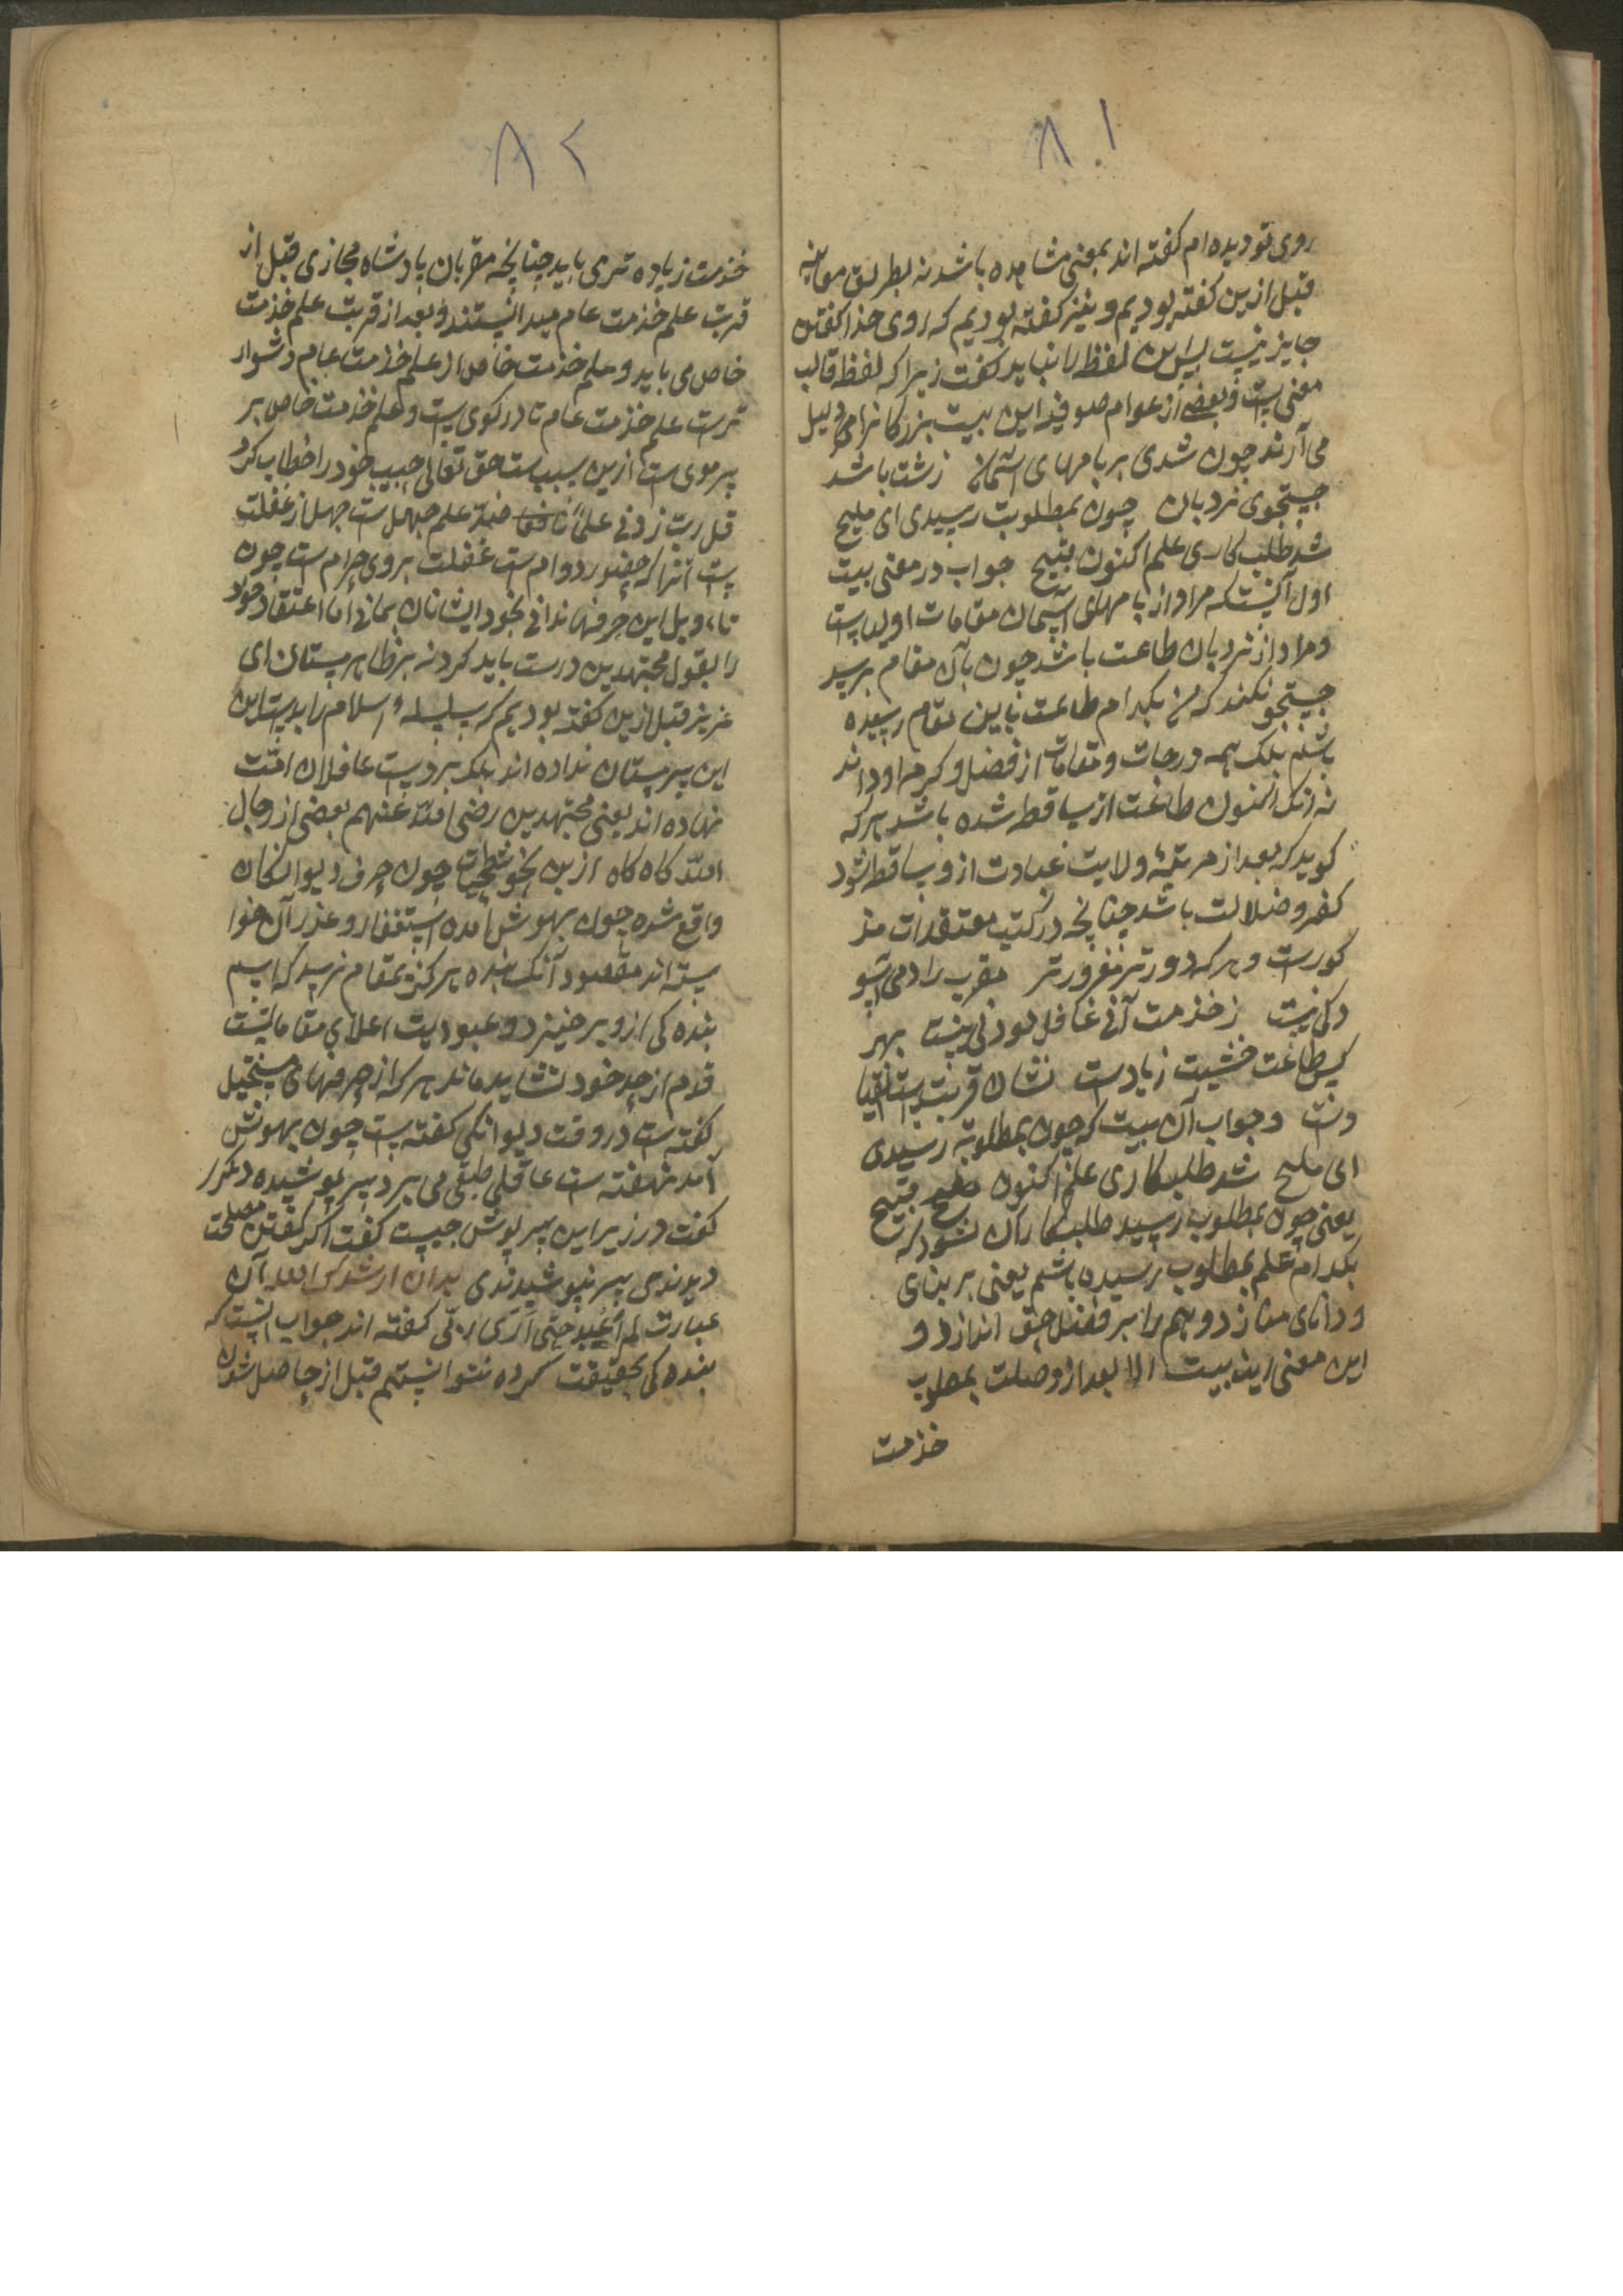 ۸۱
روی تو دیده ام کفته اند بمعنی مشاهده باشد نه بطریق معاینه
قبل ازین کفته بودیم و نیز کفته بودیم که روی خدا کفتن
جایز نیست پس این لفظ را نباید کفت زیرا که لفظ قالب
معنی است و بعضی از عوام صوفیه این بیت بزرکانرا می دلیل
می آرند چون شدی بر بامهای آسمان زشت باشد
جستجوی نردبان چون بمطلوبت رسیدی ای ملیح
شد طلب کاری علم اکنون قبیح جواب در معنی بیت
اول آنست که مراد از بامهای آسمان مقامات اولیاست
و مراد از نردبان طاعت باشد چون بآن مقام برسد
جستجو نکند که من بکدام طاعت باین مقام رسیده
باشم بلکه همه درجات و مقامات از فضل و کرم او داند
نه آنک اکنون طاعت از ساقط شده باشد هر که
کوید که بعد از مرتبهٔ ولایت عبادت از و ساقط شود
کفر و ضلالت باشد چنانچه در کتب معتقدات مذ
کورست و هر که دورتر مغرورتر مقرب را دمی آسو
دکی نیست ز خذمت آنی غافل بودنی نیست بهر
کس طاعت خشیت زیادست نشان قربتست
دنت و جواب آن بیت که چون بمطلوبت رسیدی
ای ملیح شد طلبکاری علم اکنون قبیح
یعنی چون بمطلوب رسید طلبکار آن نشود که
بکدام علم بمطلوب رسیده باشم یعنی بر بنای
و دانای ننازد و همه را بر فضل حق اندازد و
این معنی این بیت الا بعد از وصلت بمطلوب
خذمت
۸۲
خذمت زیاده تر می باید چنانچه مقربان پادشاه مجازی قبل از
قربت علم خذمت عام میدانستند و بعد از قربت علم خذمت
خاص می باید و علم خذمت خاص از علم خذمت عام دشوار
ترست علم خذمت عام تا در کوی است و علم خذمت خاص بر
سر موی است ازین سبب ست حق تعالی حبیب خود را خطاب کرد
قل رب زدنی علماً ضد علم جهل است جهل از غفلت
ست آنرا که حضور دوام ست غفلت بروی حرام ست چون
تاویل این حرفها ندانی بخود ایشانان بمانی اما اعتقاد خود
را بقول مجتهدین درست باید کرد نه بر ظاهر پرستان ای
عزیز قبل ازین کفته بودیم که سلسلهٔ اسلام را بدست این
این پیر پرستان نداده اند بلکه بر دست عاقلان امت
نهاده اند یعنی مجتهدین رضی الله عنهم بعضی از رجال
الله کاه کاه ازین نحو شطحیات چون حرف دیوانکان
واقع شده چون بهوش آمده استغفار و عذر آن خوا
سته اند مقصود آنک بنده هرکز بمقام نرسد که اسم
بنده کی از و برخیزد و عبودیت اعلای مقاماتست
قدم از حد خود نشاید ماند هر که از حرفهای مستحیل
کفته ست در وقت دیوانکی کفته ست چون بهوش
آمد نهفته ست عاقلی طبقی می برد سر پوشیده دیکر
کفت در زیر این سرپوش چیست کفت اکر کفتن مصلحت
دیدندی سر نپوشیدندی بدان ارشدک الله آن
عبارت لم اعبد حتی اری ربی کفته اند جواب آنست که
بنده کی بحقیقت کرده نتوانستم قبل از حاصل شدن